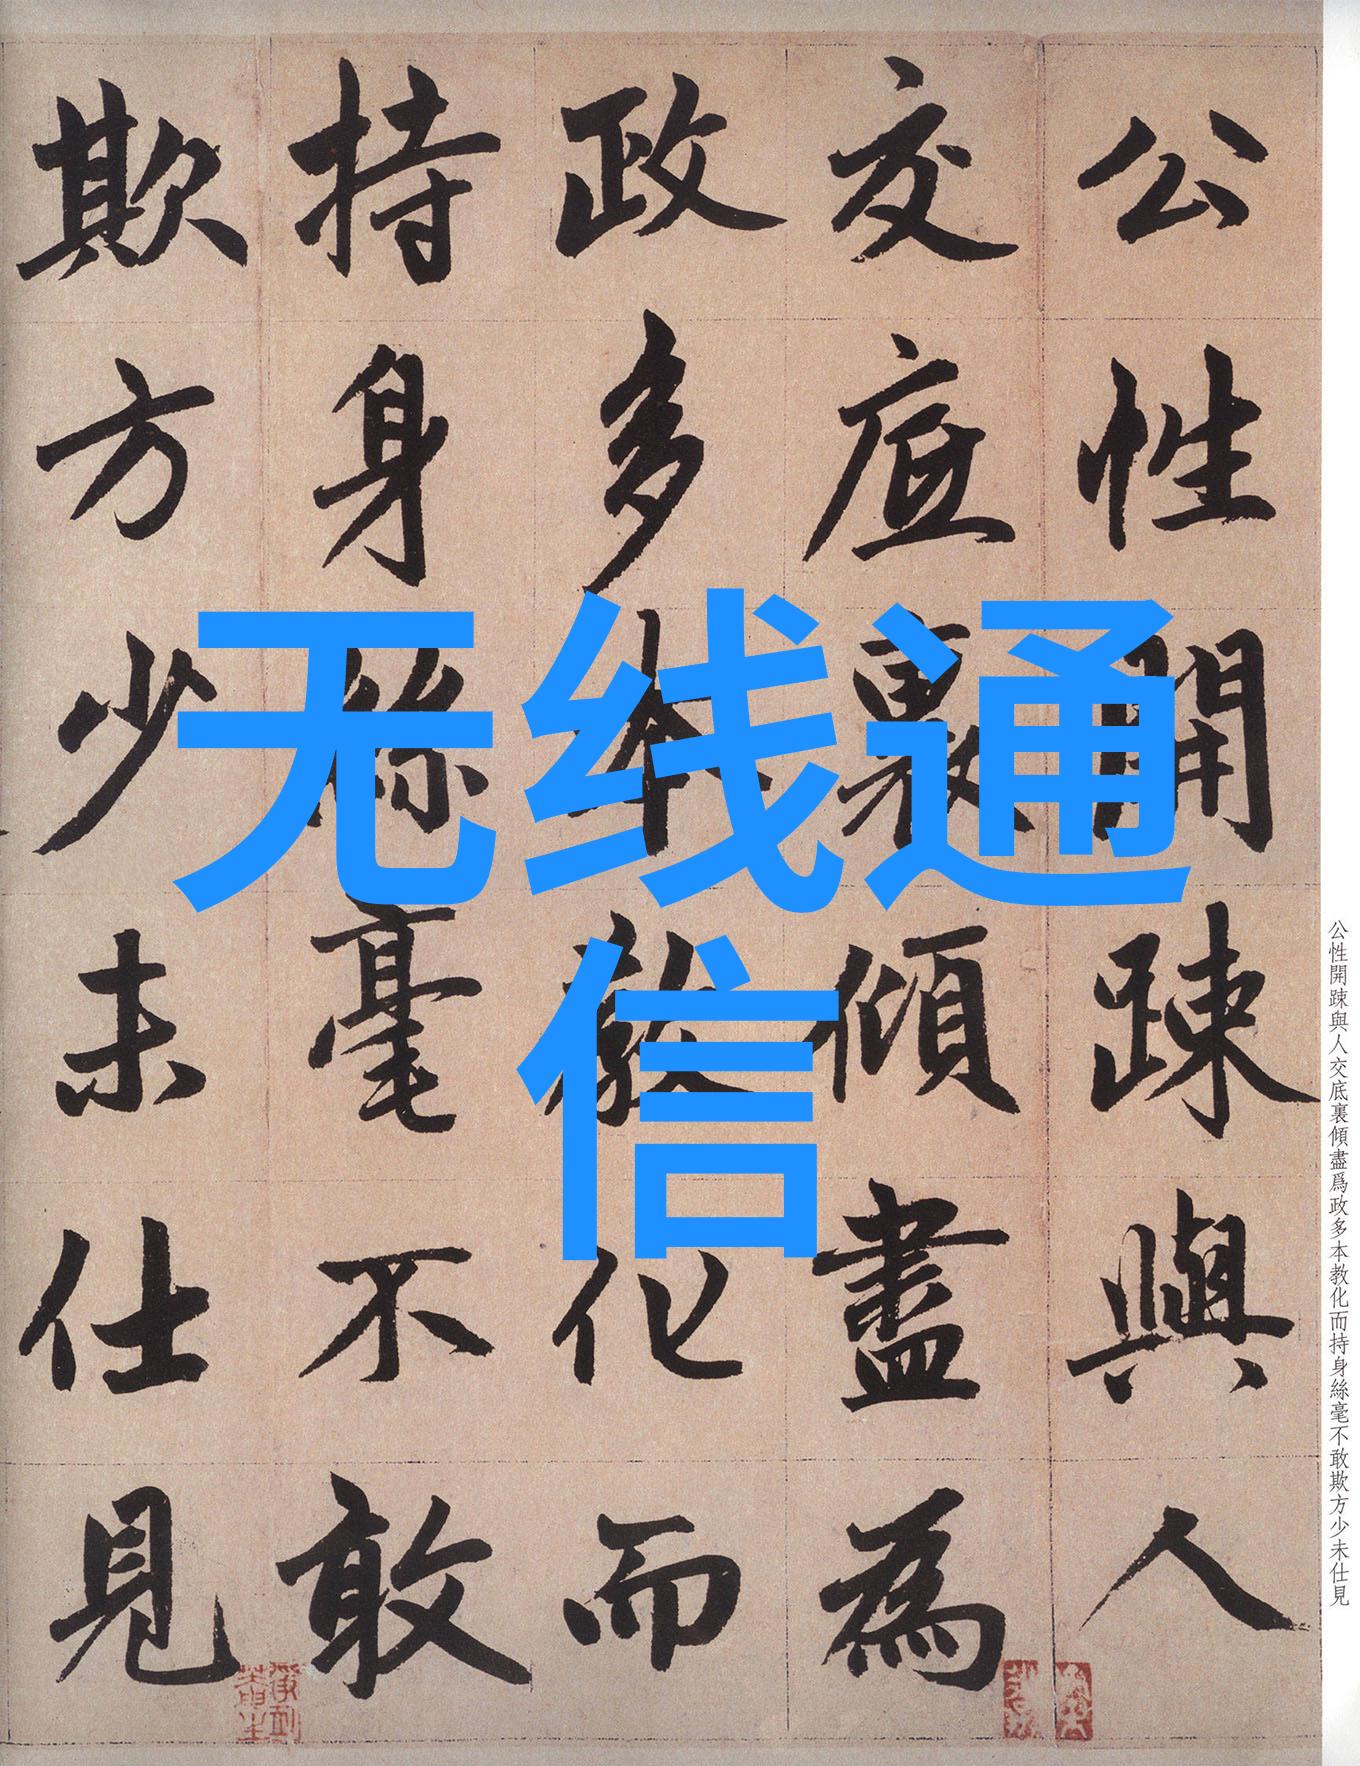 公性開踈與人
交底裏傾盡為
政多本教化而
持身絲毫不敢
欺方少未仕見
无线通
信
公性開踈與人交底裏傾盡爲政多本教化而持身絲毫不敢欺方少未仕見